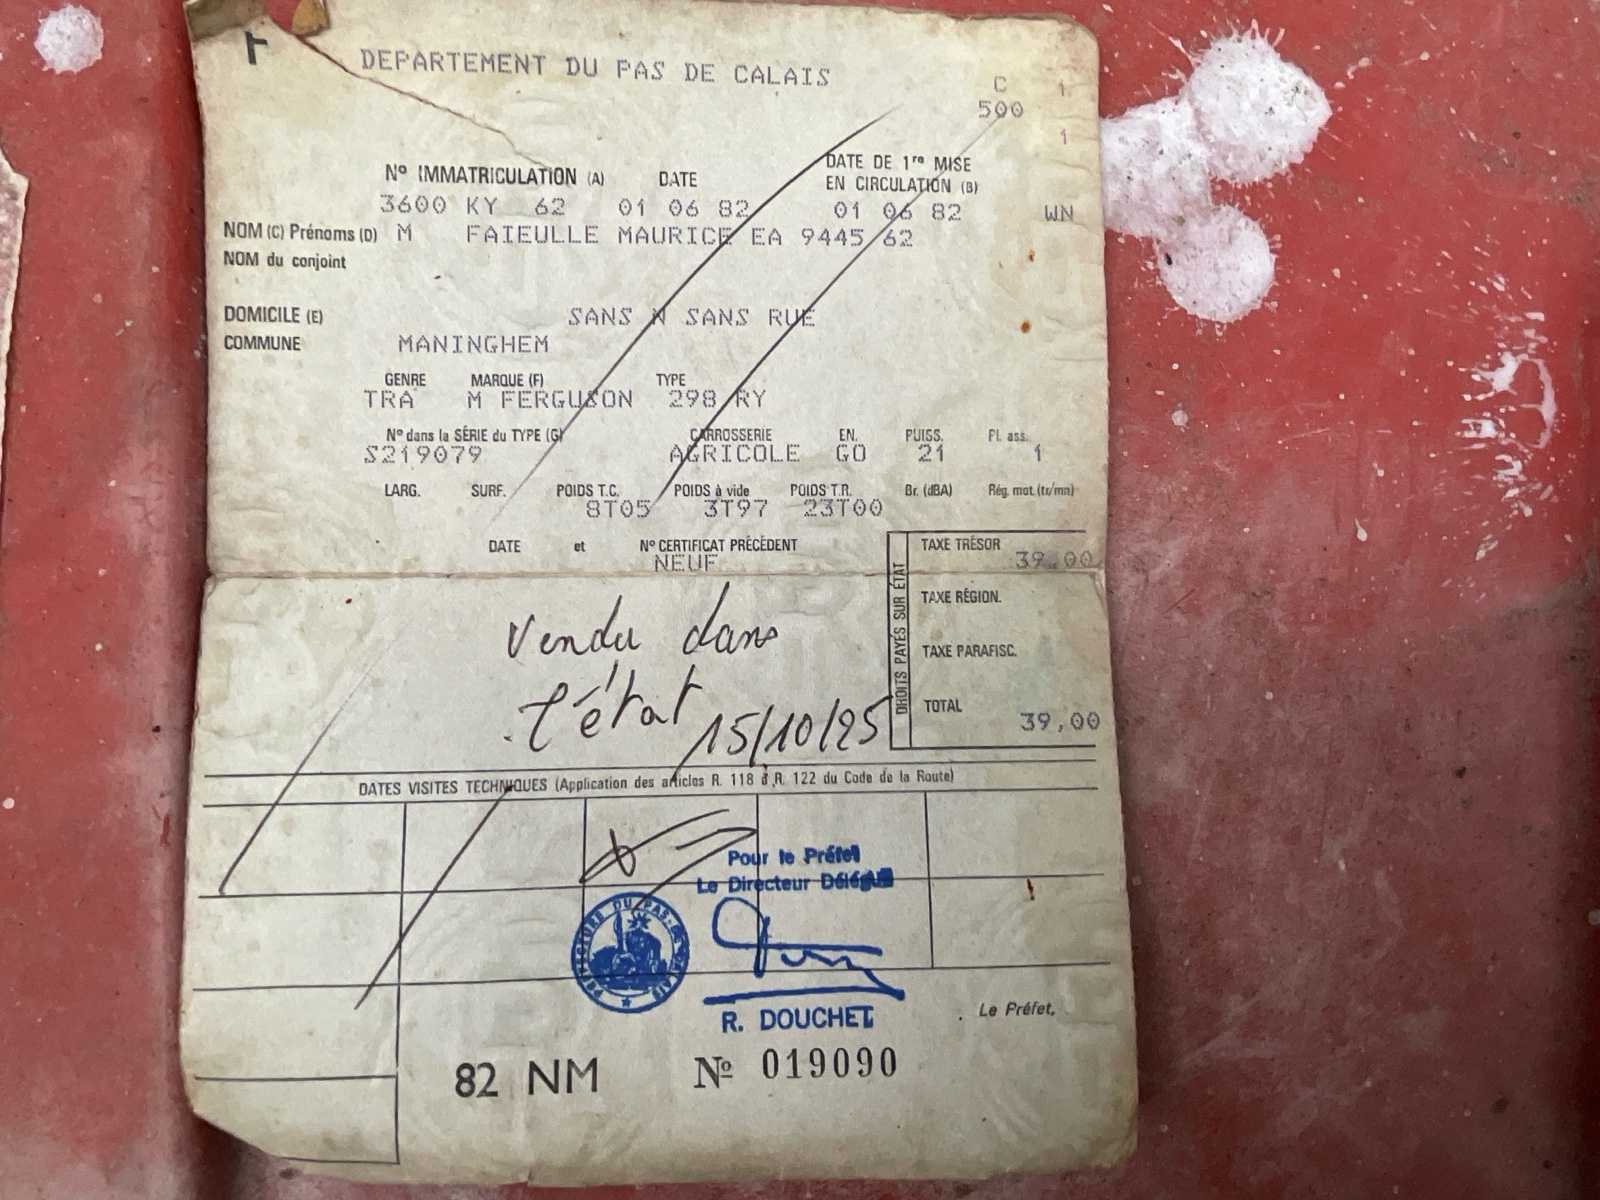 DEPARTEMENT DU PAS DE CALAIS
C 1
500
1
Nº IMMATRICULATION (A) DATE DATE DE 1re MISE EN CIRCULATION (B)
3600 KY 62 01 06 82 01 06 82 WN
NOM (C) Prénoms (D) M FAIEULLE MAURICE EA 9445 62
NOM du conjoint
DOMICILE (E) SANS N SANS RUE
COMMUNE MANINGHEM
GENRE MARQUE (F) TYPE
TRA M FERGUSON 298 RY
Nº dans la SÉRIE du TYPE (G) CARROSSERIE EN. PUISS. Pl. ass.
S219079 AGRICOLE GO 21 1
LARG. SURF. POIDS T.C. POIDS à vide POIDS T.R. Br. (dBA) Rég. mot. (tr/mn)
8T05 3T97 23T00
DATE et Nº CERTIFICAT PRÉCÉDENT
NEUF
DROITS PAYÉS SUR ÉTAT
TAXE TRÉSOR 39,00
TAXE RÉGION.
TAXE PARAFISC.
TOTAL 39,00
Vendu dans
l'état 15/10/25
DATES VISITES TECHNIQUES (Application des articles R. 118 à R. 122 du Code de la Route)
Pour le Préfet
Le Directeur Délégué
PREFECTURE DU PAS-DE-CALAIS
R. DOUCHET
Le Préfet,
82 NM Nº 019090